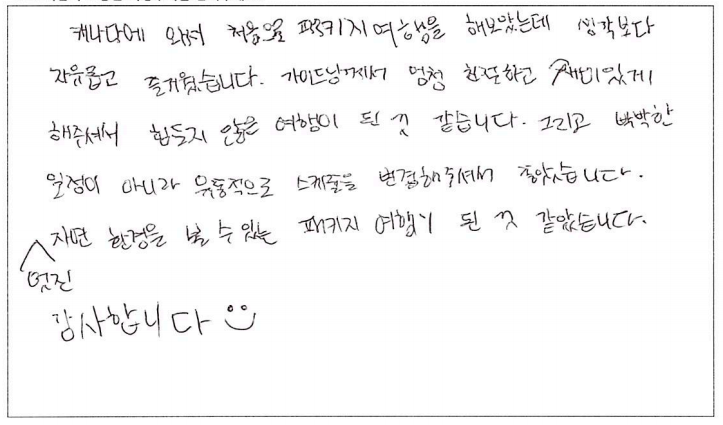 캐나다에 와서 처음으로 패키지여행을 해보았는데 생각보다
자유롭고 즐거웠습니다. 가이드님께서 엄청 친절하고 재미있게
해주셔서 힘들지 않은 여행이 된 것 같습니다. 그리고 빡빡한
일정이 아니라 유동적으로 스케줄을 변경해주셔서 좋았습니다.
멋진 자연 환경을 볼 수 있는 패키지 여행이 된 것 같았습니다.
감사합니다